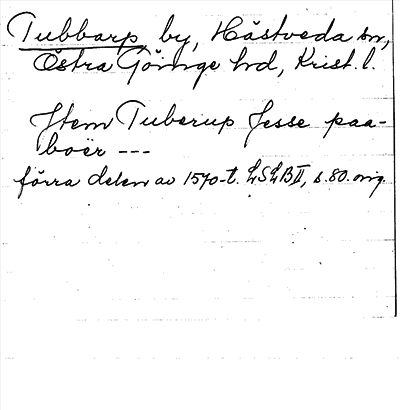 Tubbarp by, Hästveda sn,
Östra Göinge hd, Krist. l.
Item Tuberup Jesse paa-
boër ---
förra delen av 1570-t. LSLB II, s. 80. orig.